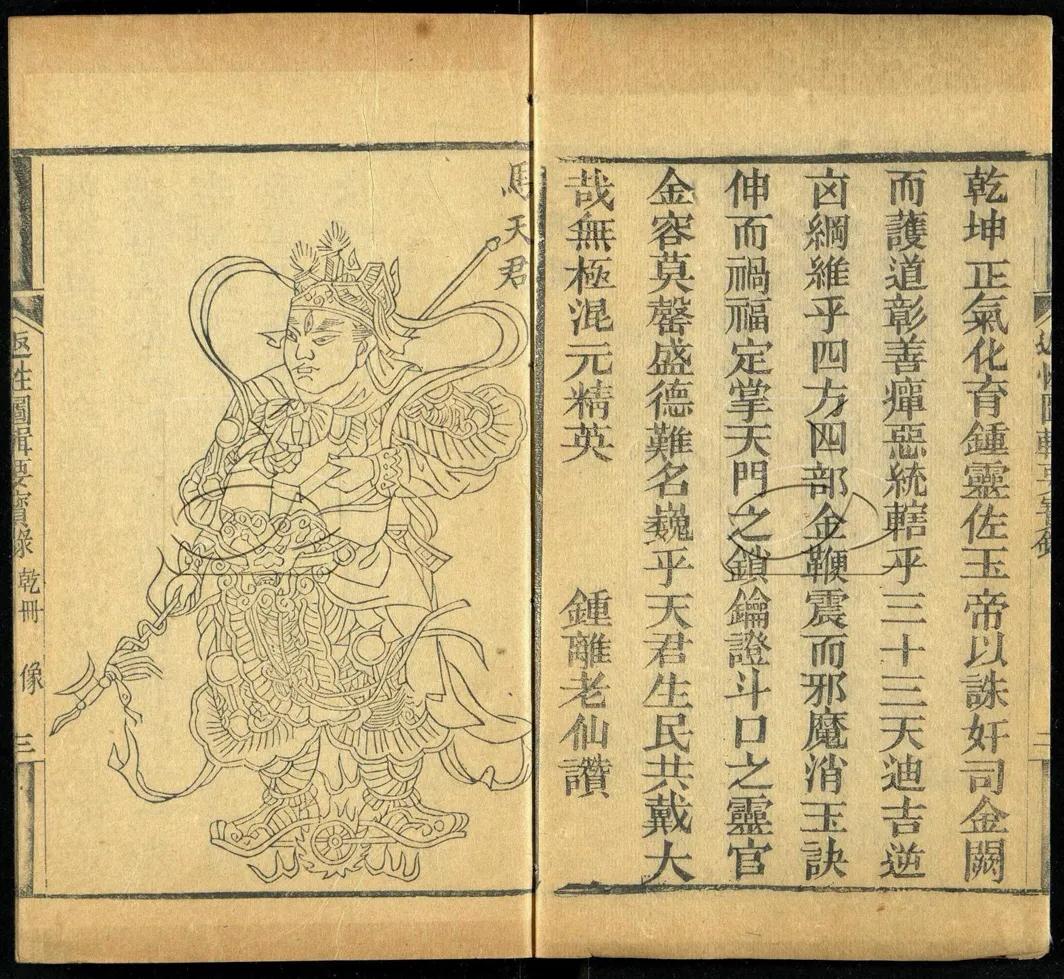 乾坤正氣化育鍾靈佐玉帝以誅奸司金闕
而護道彰善癉惡統轄乎三十三天迪吉逆
凶綱維乎四方四部金鞭震而邪魔消玉訣
伸而禍福定掌天門之鎖鑰證斗口之靈官
金容莫罄盛德難名巍乎天君生民共戴大
哉無極混元精英　　鍾離老仙讚
馬天君
返性圖輯要寶錄　乾冊　像　三